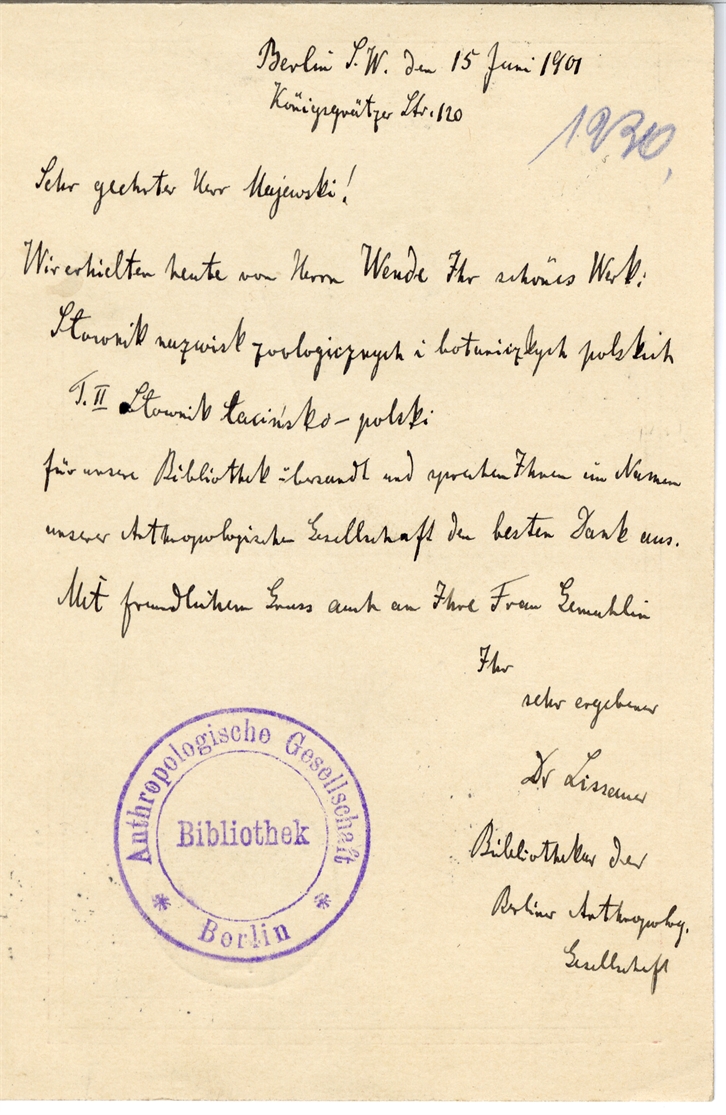 Berlin S.W. den 15 Juni 1901
Königgrätzer Str. 120
1930,
Sehr geehrter Herr Majewski!
Wir erhielten heute von Herrn Wende Ihr schönes Werk:
Słownik nazwisk zoologicznych i botanicznych polskich
T. II Słownik łacińsko-polski
für unsere Bibliothek übersandt und sprechen Ihnen im Namen
unserer Anthropologischen Gesellschaft den besten Dank aus.
Mit freundlichem Gruss auch an Ihre Frau Gemahlin
Ihr
sehr ergebener
Dr Lissauer
Bibliothekar der
Berliner Anthropolog.
Gesellschaft
Anthropologische Gesellschaft
Bibliothek
Berlin